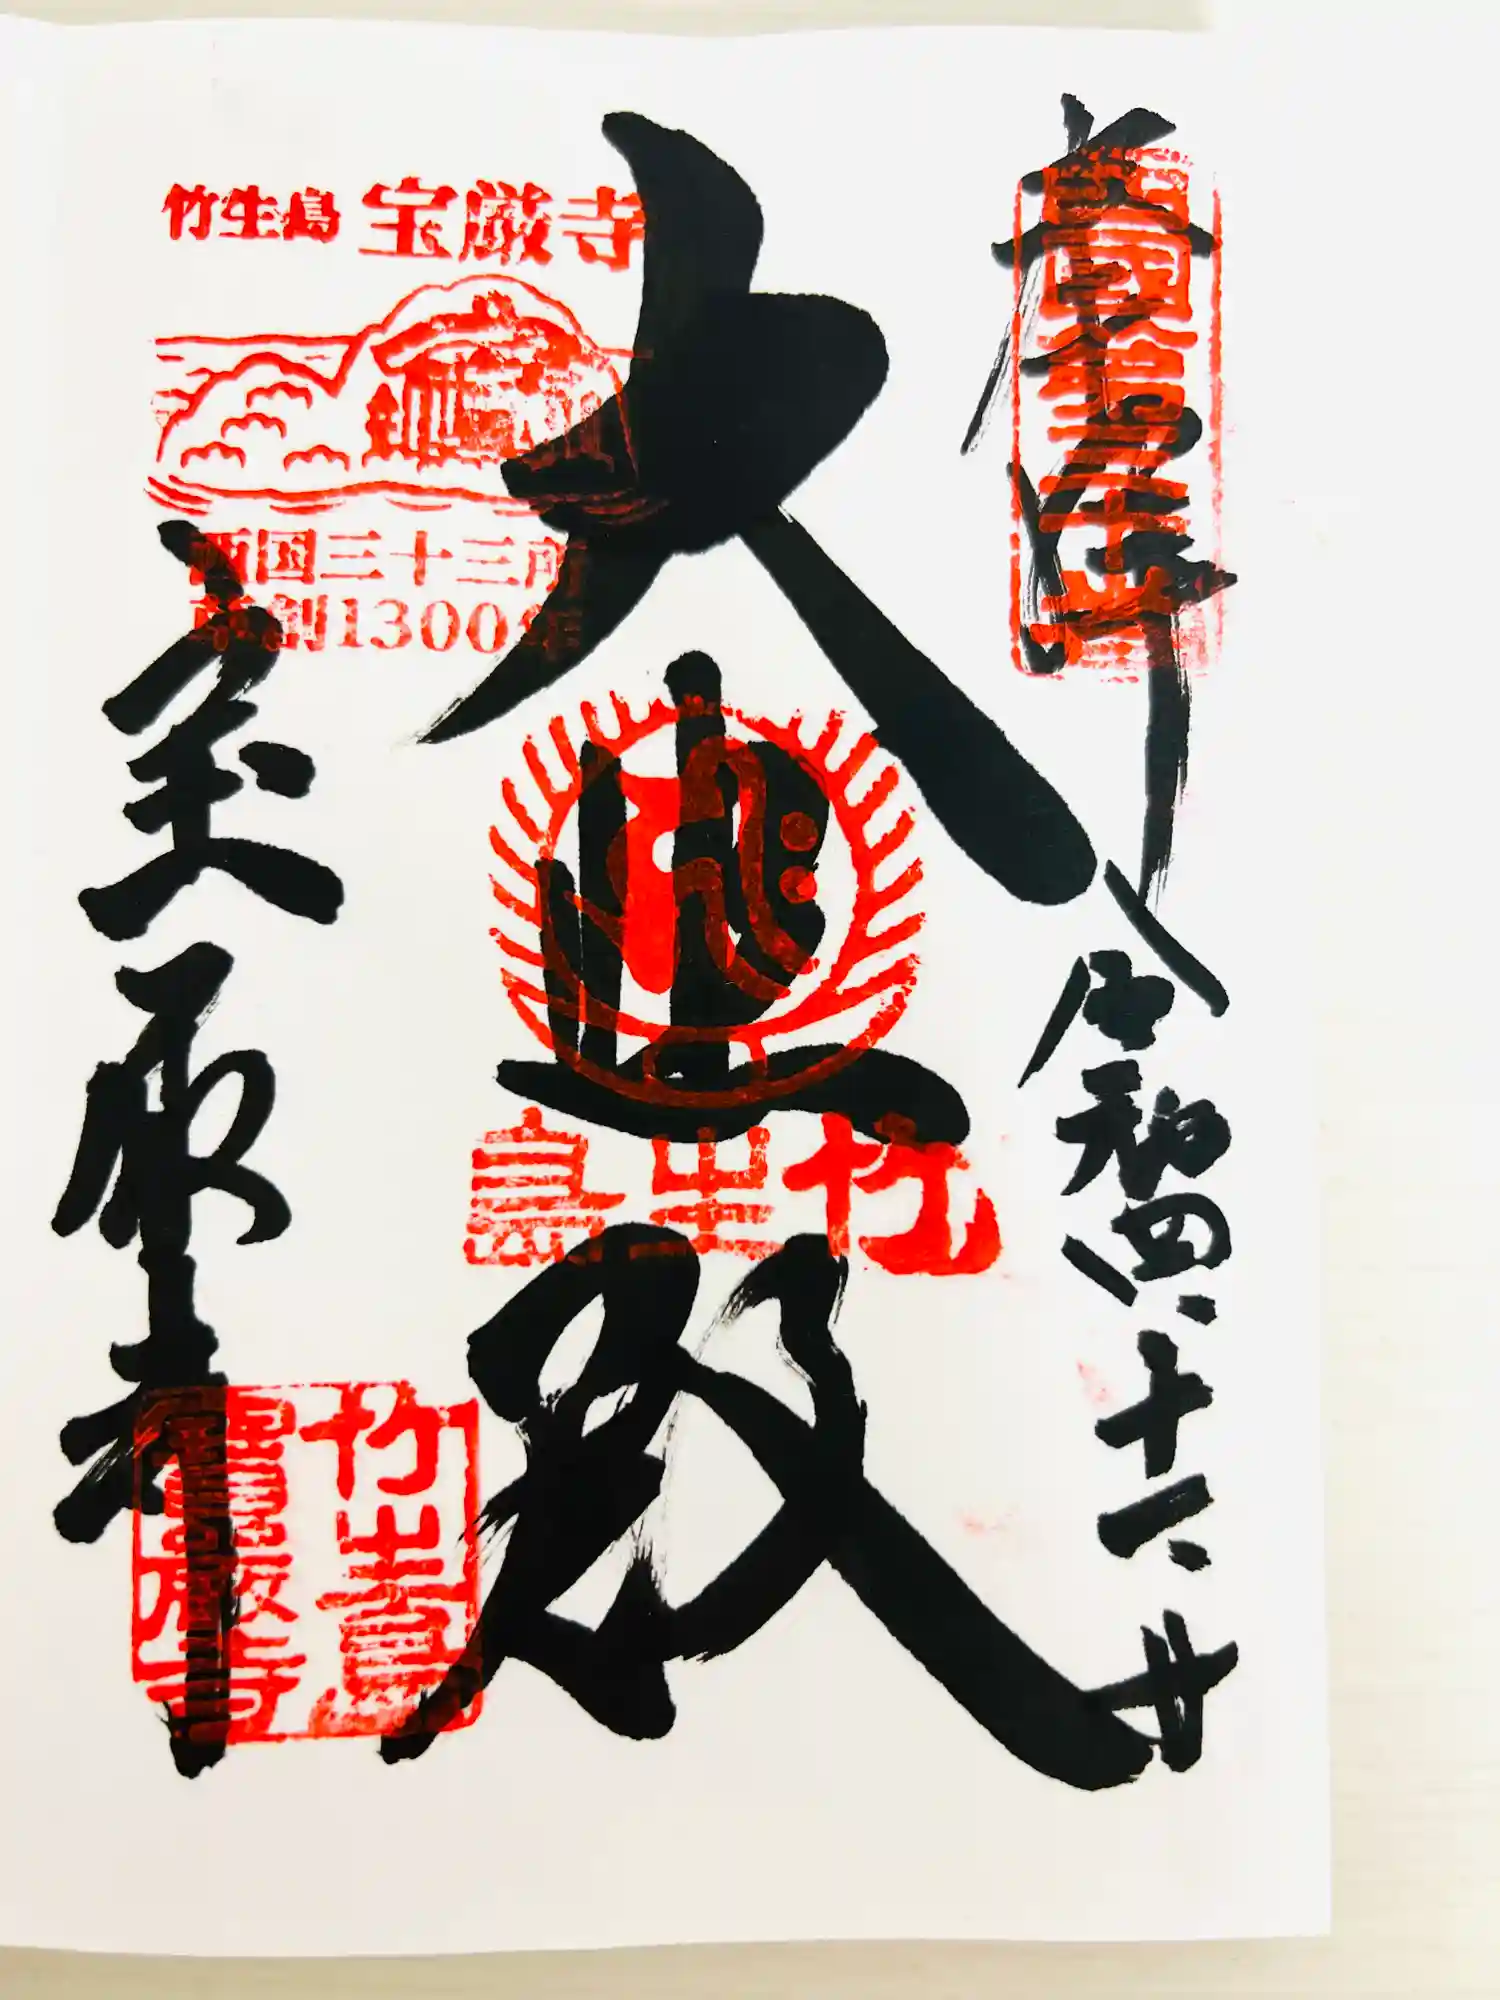 奉拝
令和四、十一、廿
大悲殿
竹生島
竹生島 宝厳寺
西国三十三所
草創1300年
宝厳寺
竹生島
寶嚴寺